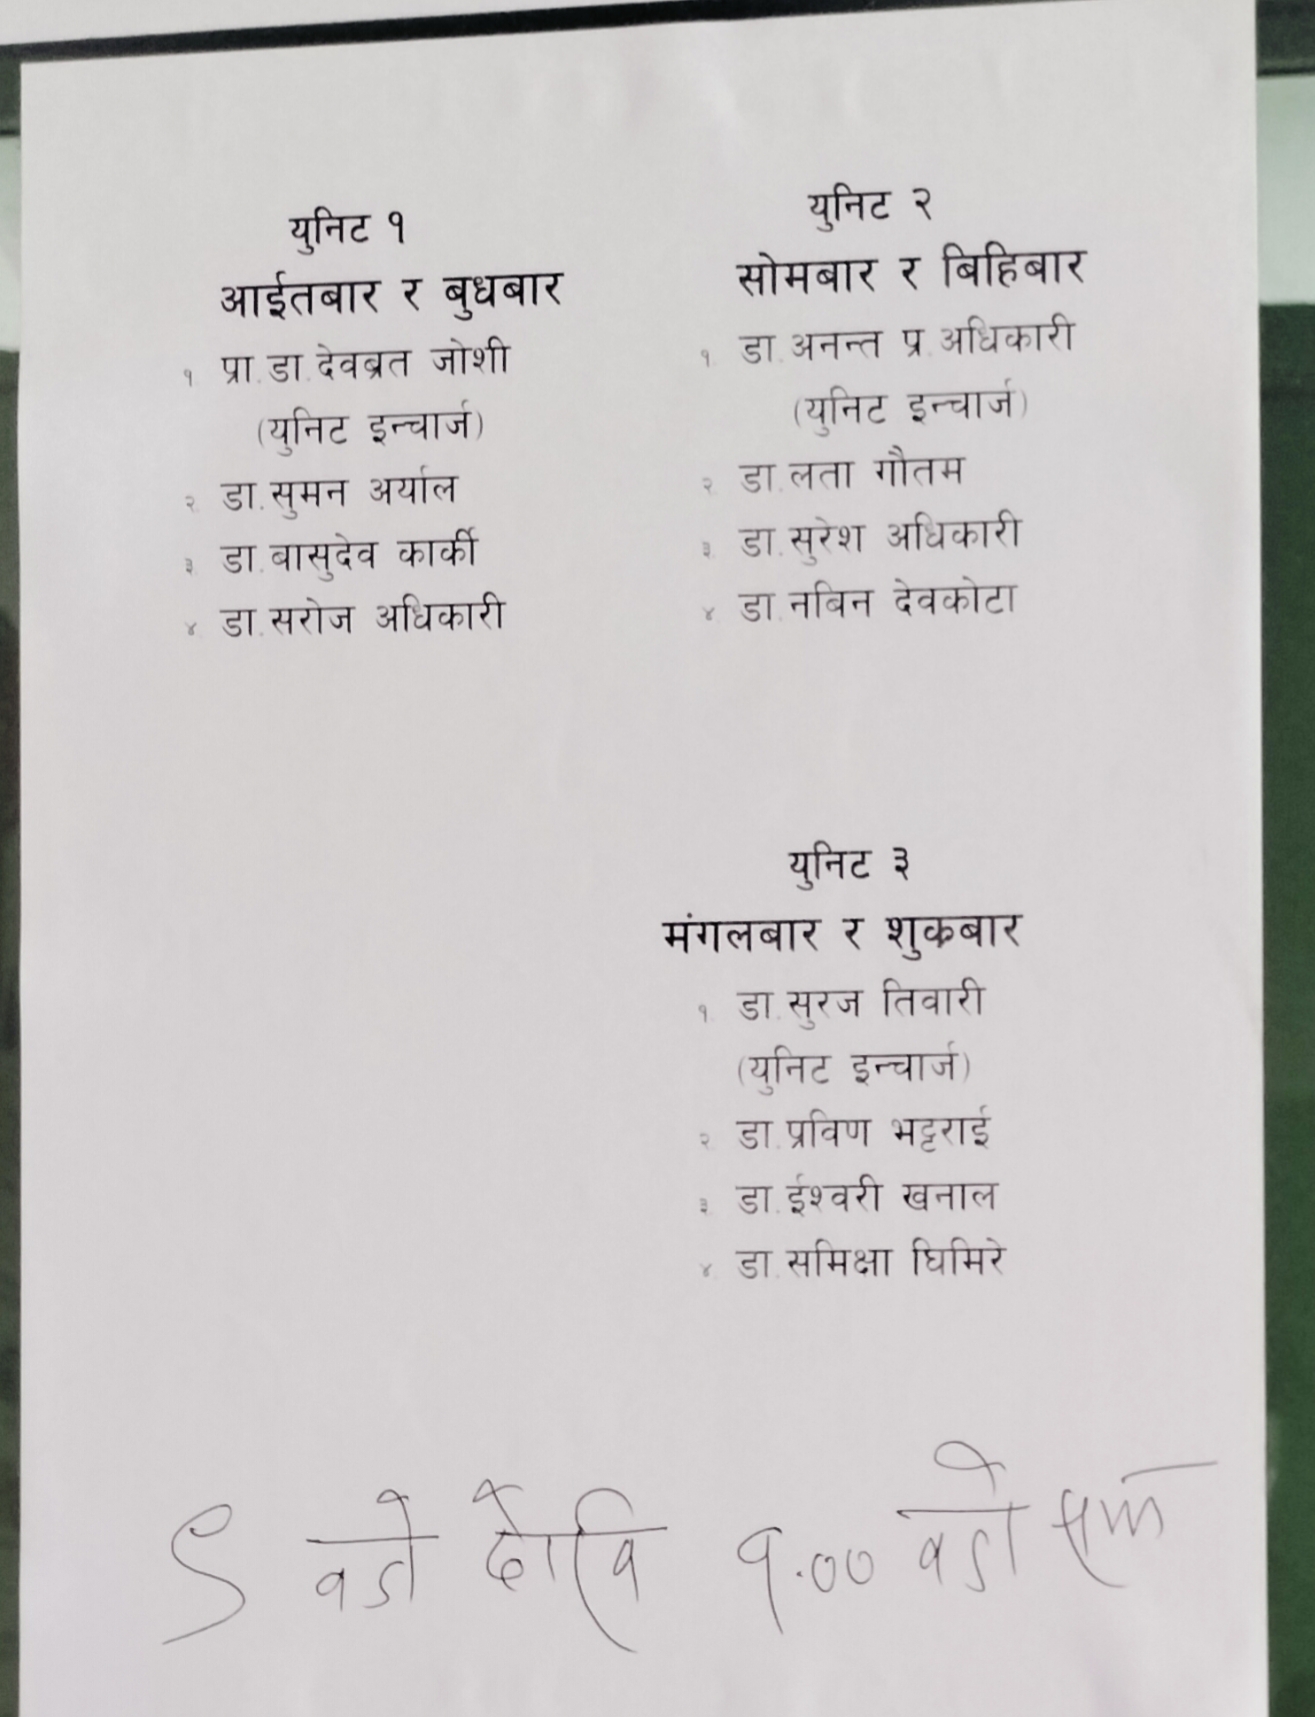 युनिट १
आईतबार र बुधबार
१. प्रा.डा.देवब्रत जोशी
(युनिट इन्चार्ज)
२. डा.सुमन अर्याल
३. डा.बासुदेव कार्की
४. डा.सरोज अधिकारी
युनिट २
सोमबार र बिहिबार
१. डा.अनन्त प्र.अधिकारी
(युनिट इन्चार्ज)
२. डा.लता गौतम
३. डा.सुरेश अधिकारी
४. डा.नबिन देवकोटा
युनिट ३
मंगलबार र शुक्रबार
१. डा.सुरज तिवारी
(युनिट इन्चार्ज)
२. डा.प्रविण भट्टराई
३. डा.ईश्वरी खनाल
४. डा.समिक्षा घिमिरे
९ वजे देखि १.०० वजे सम्म